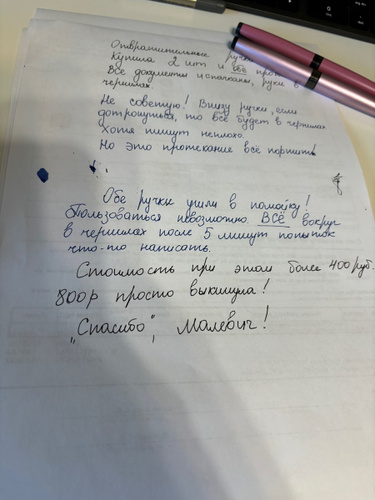 Отвратительные руч
Купила 2 шт и все про
Все документы испачканы, руки в
чернилах
Не советую! Внизу ручки, если
дотронуться, то всё будет в чернилах
Хотя пишут неплохо.
Но это протекание всё портит!
Обе ручки ушли в помойку!
Пользоваться невозможно. ВСЁ вокруг
в чернилах после 5 минут попыток
что-то написать.
Стоимость при этом более 400 руб.
800р просто выкинула!
„Спасибо", Малевич!